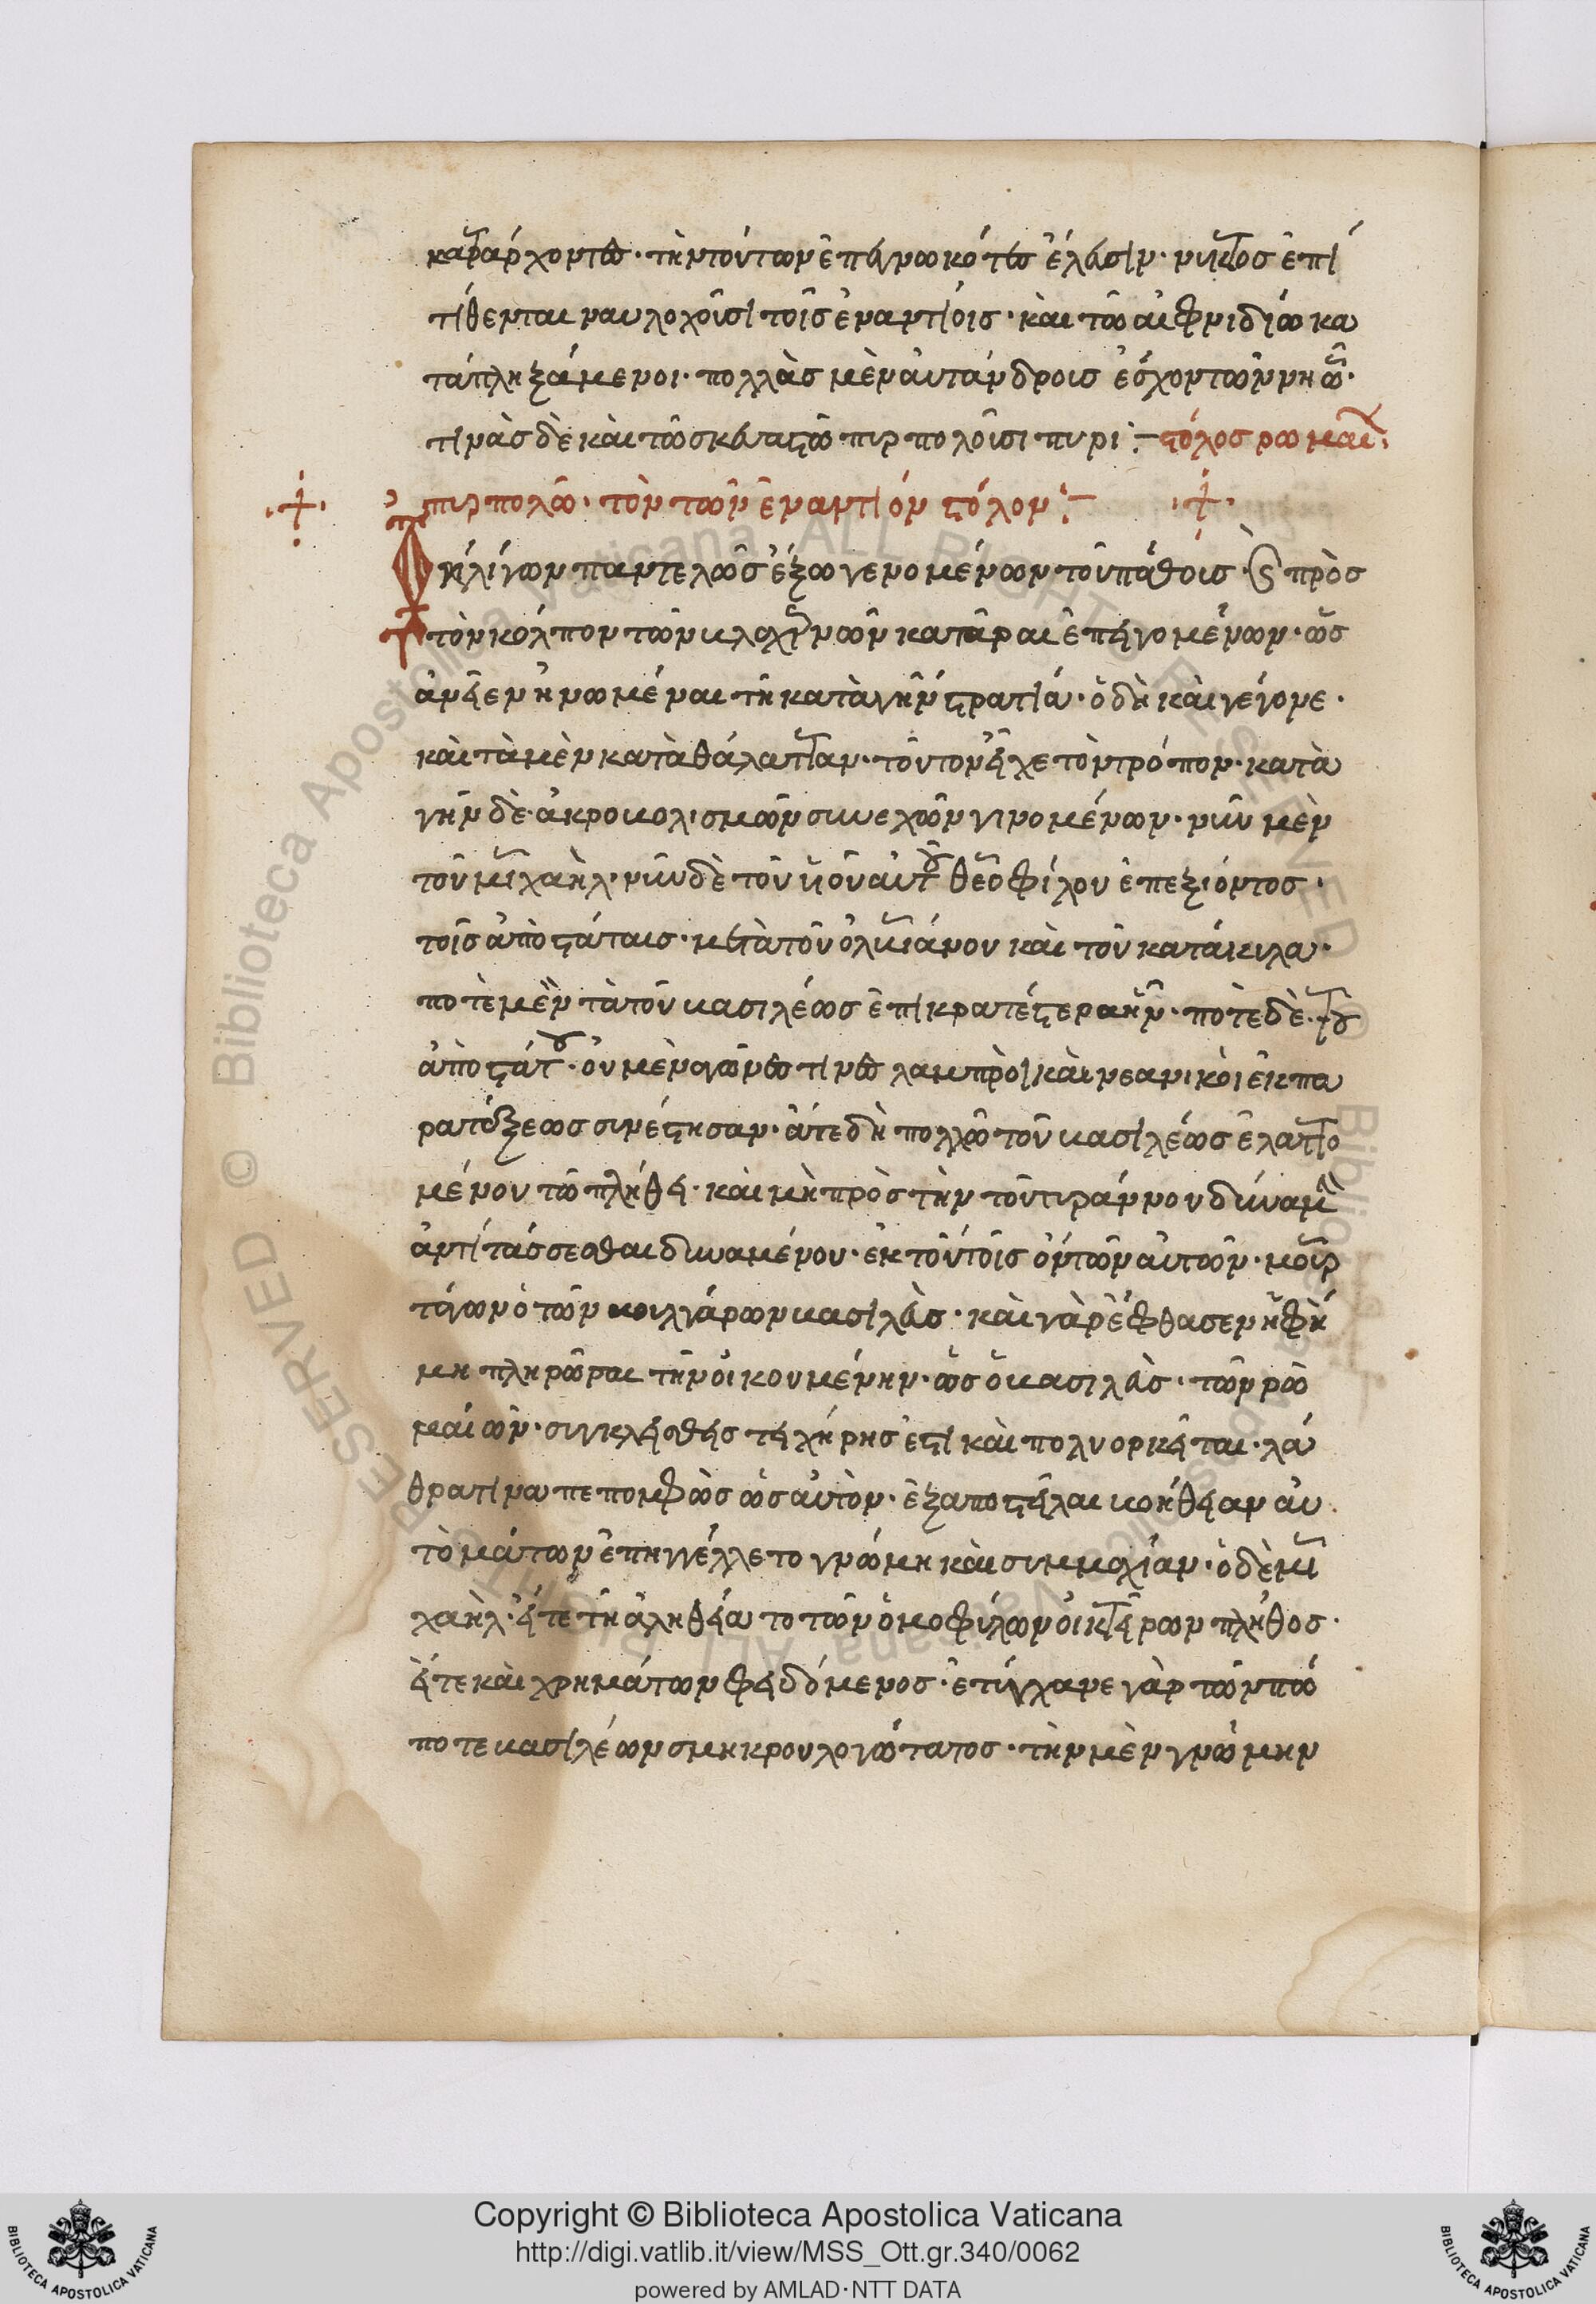 κατάρχοντες· τὴν τούτων ἐπεγνωκότες ἔλευσιν· νυκτὸς ἐπι
τίθενται ναυλοχοῦσι τοῖς ἐναντίοις· καὶ τῶ αἰφνιδίω κα
ταπληξάμενοι· πολλὰς μὲν αὐτάνδροις ἔσχον τῶν νηῶν·
τινὰς δὲ καὶ τῶ σκευαστῶ πυρπολοῦσι πυρί :– στόλος ρωμαι
πυρπολῶν· τὸν τῶν ἐναντίον στόλον :–
Ὀλίγων παντελῶς ἔξω γενομένων τοῦ πάθοις· καὶ πρὸς
τὸν κόλπον τῶν βλαχερνῶν κατᾶραι ἐπειγομένων· ὡς
ἂν εἶεν ἡνωμέναι τῆ κατὰ γῆν στρατιᾶ· ὃ δὴ καὶ γέγονε·
καὶ τὰ μὲν κατὰ θάλατταν· τοῦτον εἶχε τὸν τρόπον· κατὰ
γῆν δὲ· ἀκροβολισμῶν συνεχῶν γινομένων· νῦν μὲν
τοῦ μιχαὴλ· νῦν δὲ τοῦ υἱοῦ αὐτοῦ θεοφίλου ἐπεξιόντος·
τοῖς ἀποστάταις· μετὰ τοῦ ὀλβιάνου καὶ τοῦ κατάκυλα·
ποτὲ μὲν τὰ τοῦ βασιλέως ἐπικρατέστερα ἦν· ποτὲ δὲ· τοῦ
ἀποστάτου· οὐ μὲν ἀγῶνες τινες λαμπροὶ καὶ νεανικοὶ ἐκ πα
ρατάξεως συνέστησαν· ἅτε δὴ πολλῶ τοῦ βασιλέως ἐλαττο
μένου τῶ πλήθει· καὶ μὴ πρὸς τὴν τοῦ τυράννου δύναμιν
ἀντιτάσσεσθαι δυναμένου· ἐν τούτοις ὄντων αὐτῶν· μουρ
τάγων ὁ τῶν βουλγάρων βασιλεὺς· καὶ γὰρ ἔφθασεν ἡ φή
μη πληρῶσαι τὴν οἰκουμένην· ὡς ὁ βασιλεὺς· τῶν ρω
μαίων· συγκλεισθεὶς τειχήρης ἐστὶ καὶ πολυορκεῖται· λά
θρα τινα πεπομφὼς ὡς αὐτὸν· ἐξαποστεῖλαι βοήθειαν αὐ
τομάτων ἐπηγγέλλετο γνώμη καὶ συμμαχίαν· ὁ δὲ μι
χαὴλ· εἴτε τῆ ἀληθεία το τῶν ὁμοφύλων οἰκτείρων πλῆθος·
εἴτε καὶ χρημάτων φειδόμενος· ἐτύγχανε γὰρ τῶν πώ
ποτε βασιλέων σμηκρουλογώτατος· τὴν μὲν γνώμην
Copyright © Biblioteca Apostolica Vaticana
http://digi.vatlib.it/view/MSS_Ott.gr.340/0062
powered by AMLAD·NTT DATA